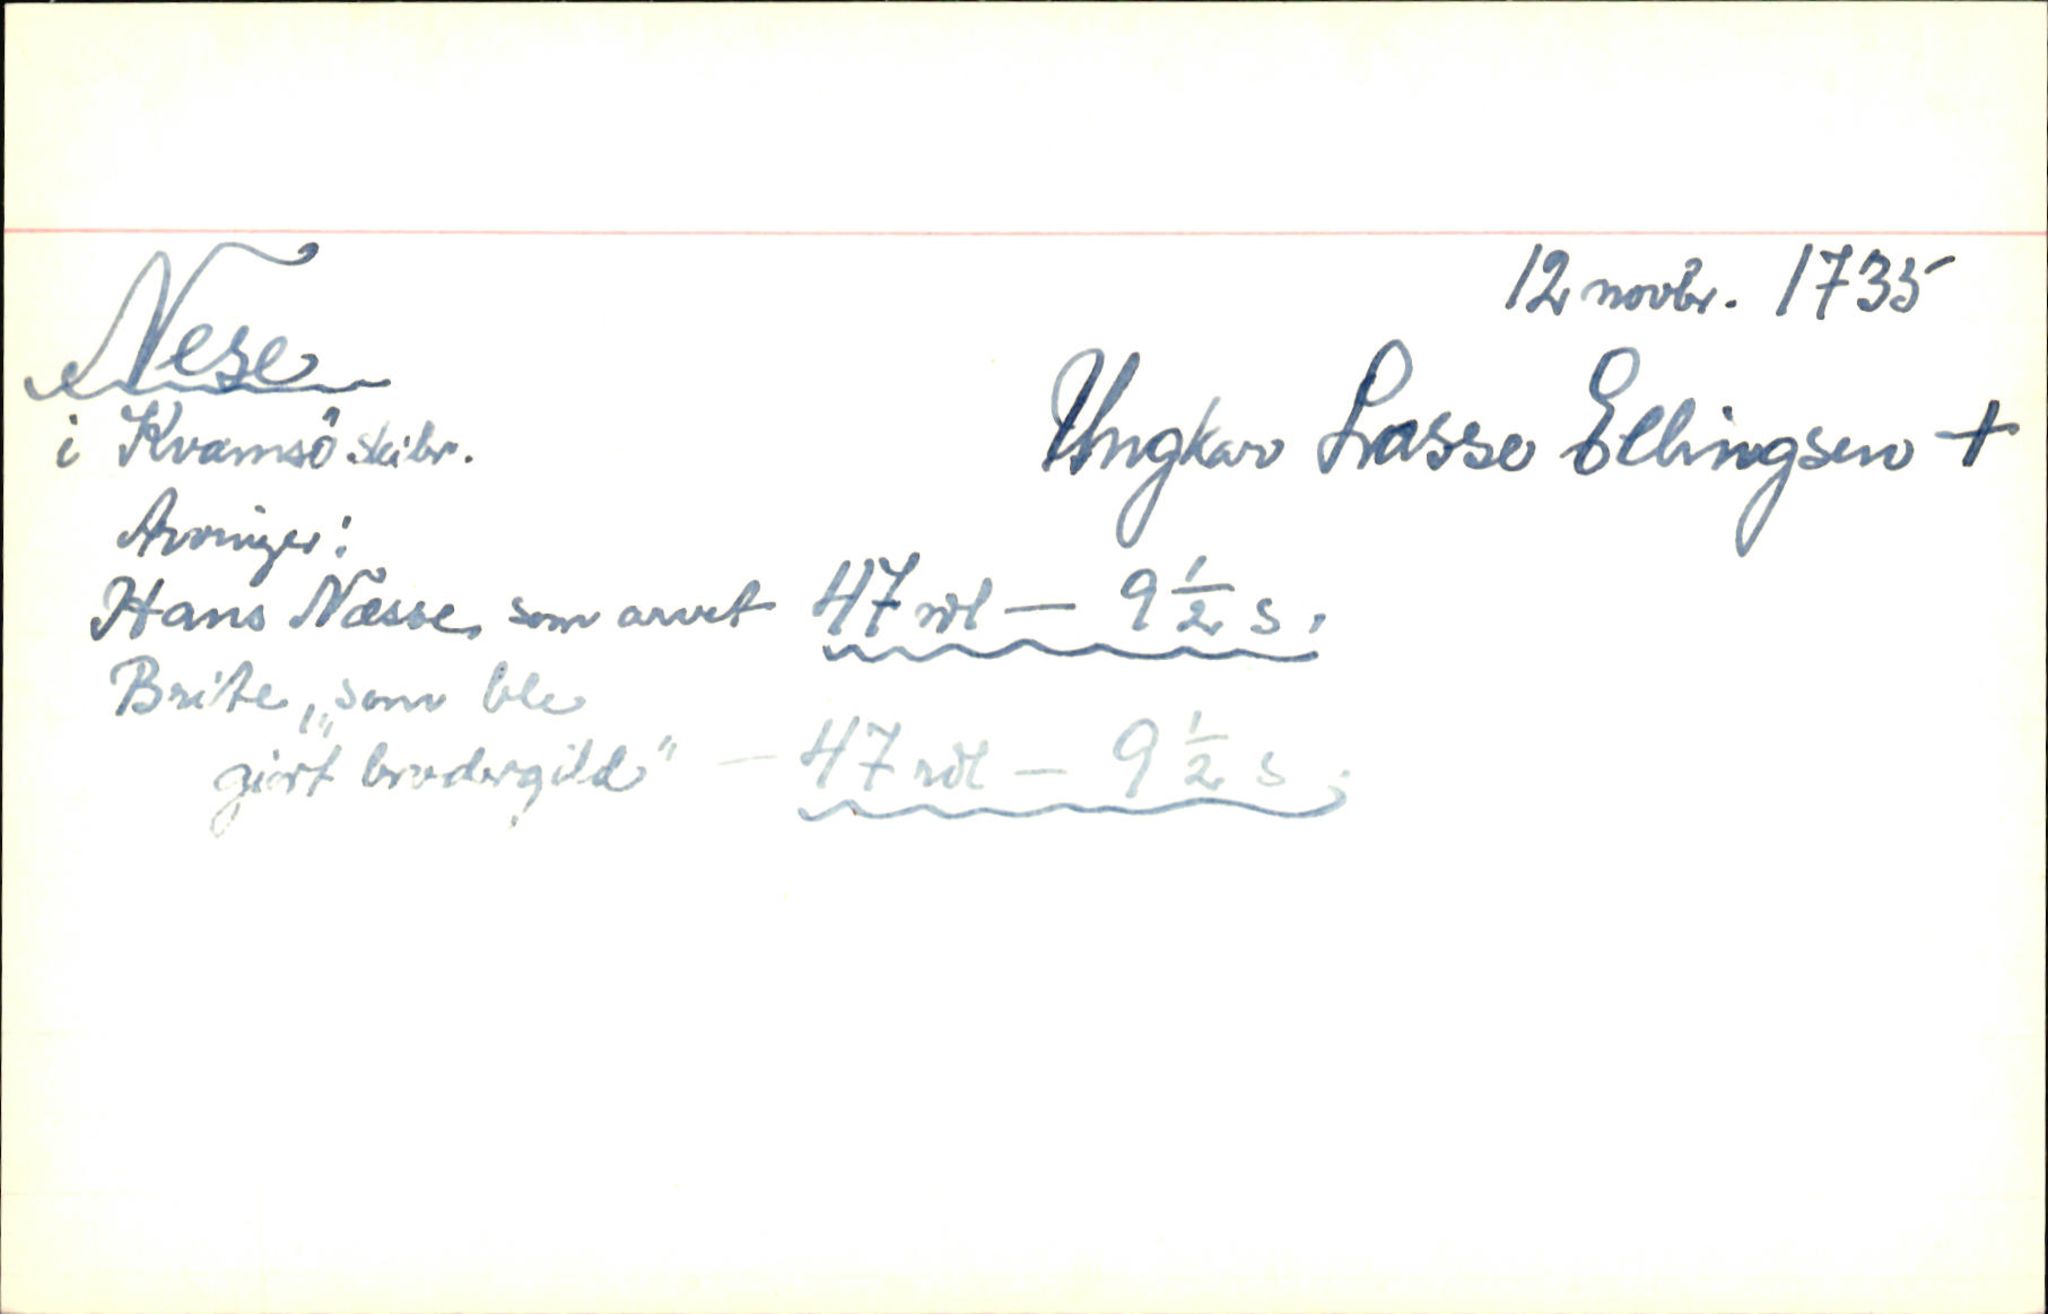 12 novbr. 1735
Nese
i Kvamsö skibr.
Ungkar Lasse Ellingsen +
Arvinger:
Hans Næsse, som arvet 47 rdl — 9 1/2 s.
Brite, „som ble
giort brudergild" — 47 rdl — 9 1/2 s.